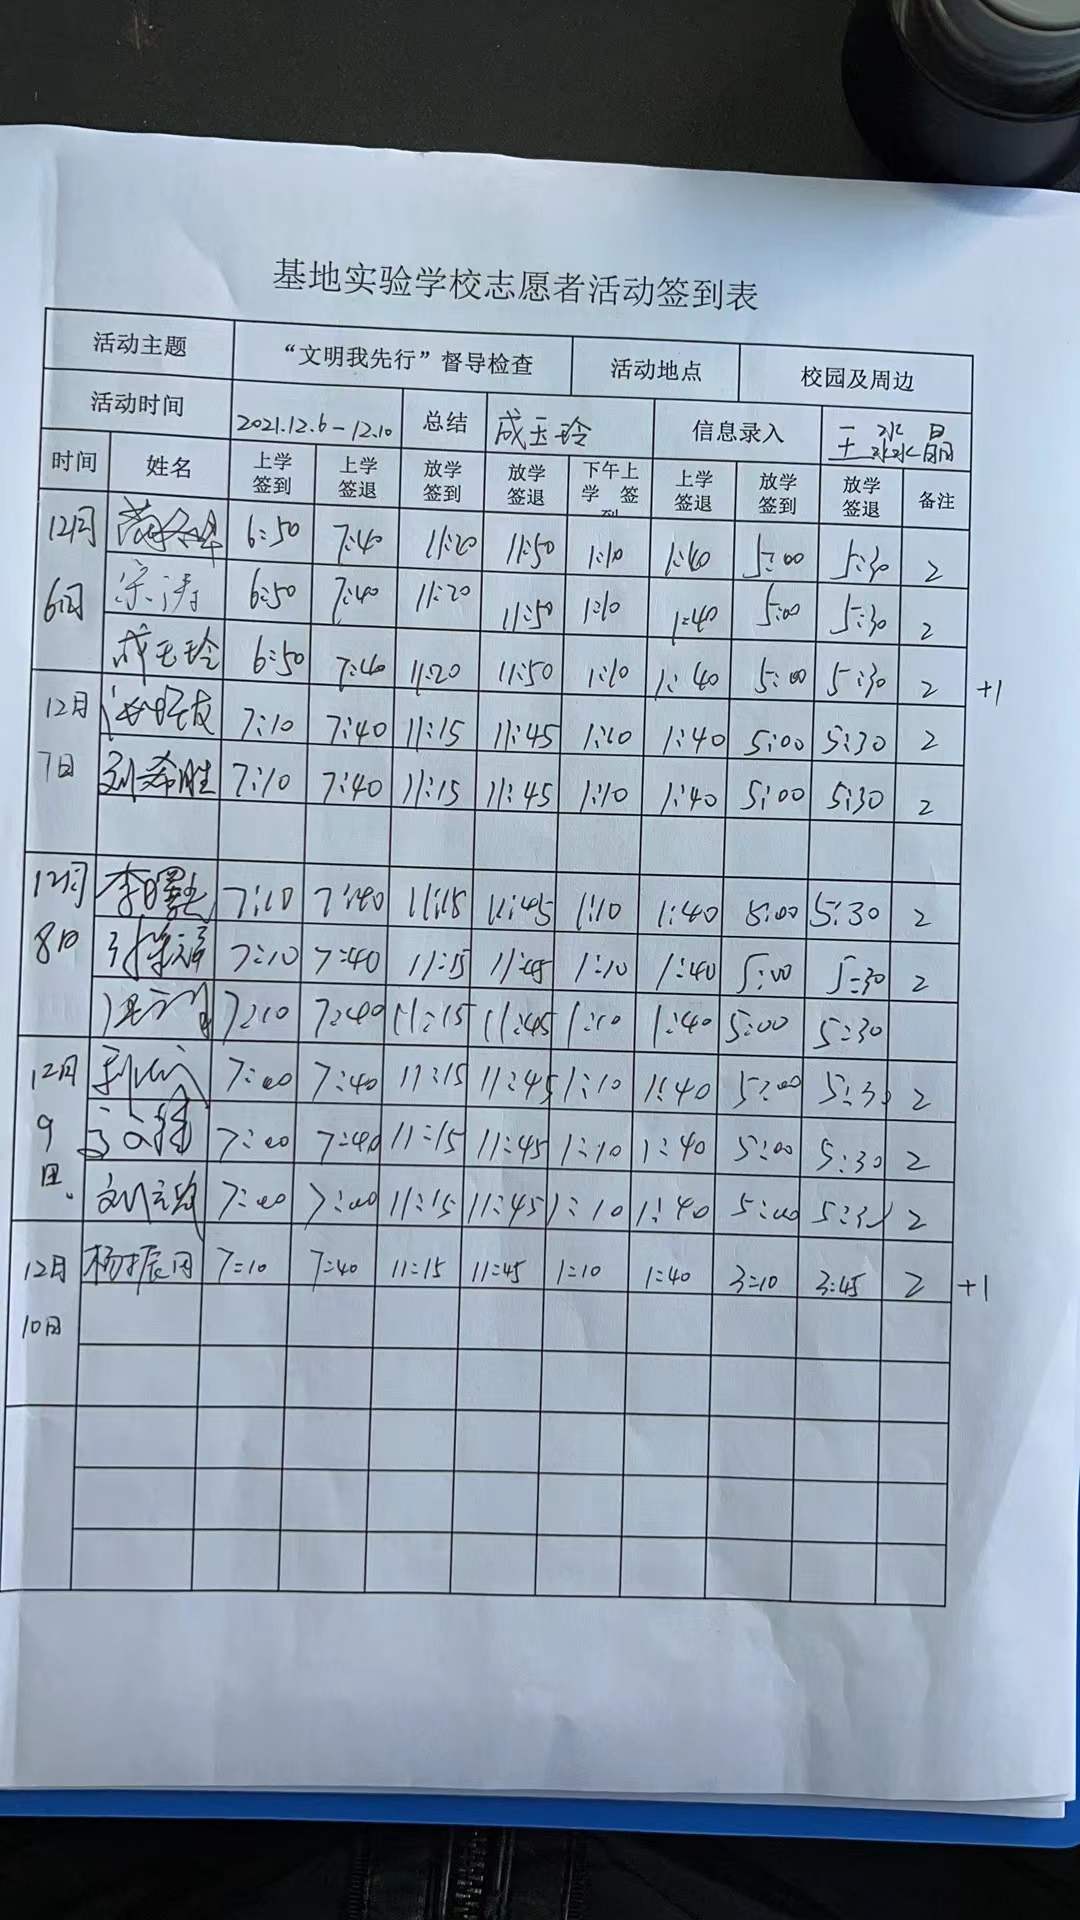 基地实验学校志愿者活动签到表
活动主题 “文明我先行”督导检查 活动地点 校园及周边
活动时间 2021.12.6-12.10 总结 成玉玲 信息录入 王淼淼晶
时间 姓名 上学签到 上学签退 放学签到 放学签退 下午上学 签到 上学签退 放学签到 放学签退 备注
12月6日 6:50 7:40 11:20 11:50 1:10 1:40 5:00 5:30 2
宋涛 6:50 7:40 11:20 11:50 1:10 1:40 5:00 5:30 2
成玉玲 6:50 7:40 11:20 11:50 1:10 1:40 5:00 5:30 2 +1
12月7日 7:10 7:40 11:15 11:45 1:10 1:40 5:00 5:30 2
刘希胜 7:10 7:40 11:15 11:45 1:10 1:40 5:00 5:30 2
12月8日 李曙 7:10 7:40 11:15 11:45 1:10 1:40 5:00 5:30 2
7:10 7:40 11:15 11:45 1:10 1:40 5:00 5:30 2
7:10 7:40 11:15 11:45 1:10 1:40 5:00 5:30
12月9日. 7:00 7:40 11:15 11:45 1:10 1:40 5:00 5:30 2
7:00 7:40 11:15 11:45 1:10 1:40 5:00 5:30 2
7:00 7:00 11:15 11:45 1:10 1:40 5:00 5:30 2
12月10日 杨振田 7:10 7:40 11:15 11:45 1:10 1:40 3:10 3:45 2 +1